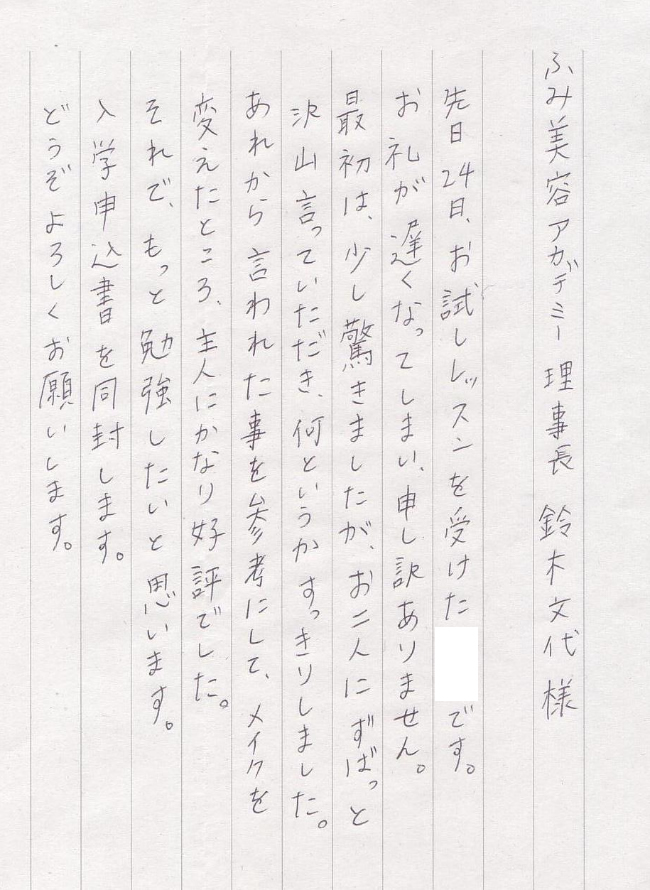 ふみ美容アカデミー 理事長 鈴木文代様
先日24日、お試しレッスンを受けた です。
お礼が遅くなってしまい、申し訳ありません。
最初は、少し驚きましたが、お二人にずばっと
沢山言っていただき、何というかすっきりしました。
あれから言われた事を参考にして、メイクを
変えたところ、主人にかなり好評でした。
それで、もっと勉強したいと思います。
入学申込書を同封します。
どうぞよろしくお願いします。